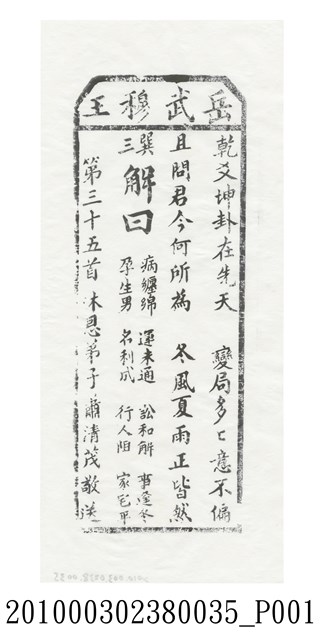 岳武穆王
乾爻坤卦在先天　變局多亡意不偏
且問君今何所為　冬風夏雨正皆然
巽三
解曰
病纏綿　運未通　訟和解　事逢冬
孕生男　名利成　行人阻　家宅平
第三十五首　沐恩弟子蕭清茂敬送
201000302380035_P001